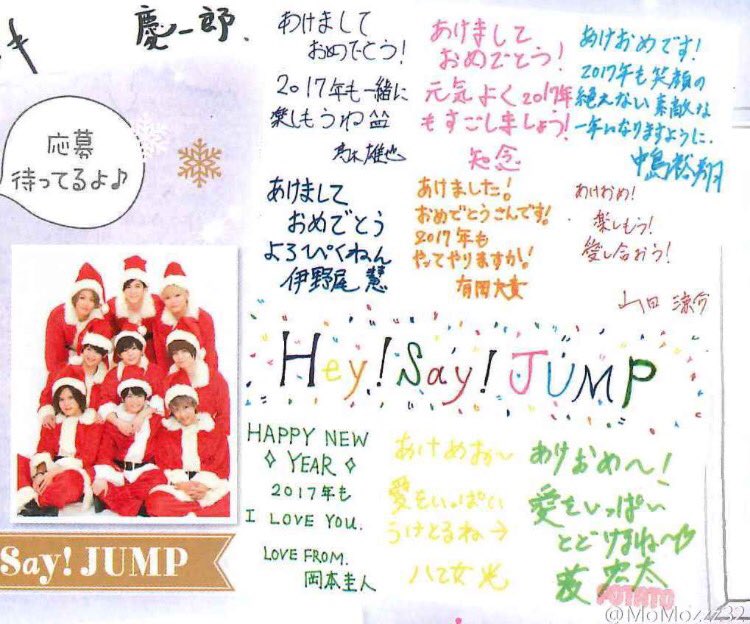 慶一郎.
応募
待ってるよ♪
あけまして
おめでとう!
2017年も一緒に
楽しもうね
髙木雄也
あけまして
おめでとう!
元気よく2017年
もすごしましょう!
知念
あけおめです!
2017年も笑顔の
絶えない素敵な
一年になりますように.
中島裕翔
あけまして
おめでとう
よろぴくねん
伊野尾 慧
あけました!
おめでとうこんです!
2017年も
やってやりますか!
有岡大貴
あけおめ!
楽しもう!
愛し合おう!
山田 涼介
Hey! Say! JUMP
HAPPY NEW
YEAR
2017年も
I LOVE YOU.
LOVE FROM.
岡本圭人
あけめおー
愛をいっぱい
うけとるね→
八乙女 光
あけおめ〜!
愛をいっぱい
とどけまね〜
薮 宏太
Say! JUMP
POTATO
@MoMozzi32